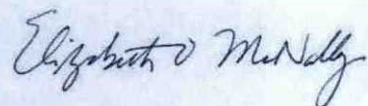 Elizabeth O McNally